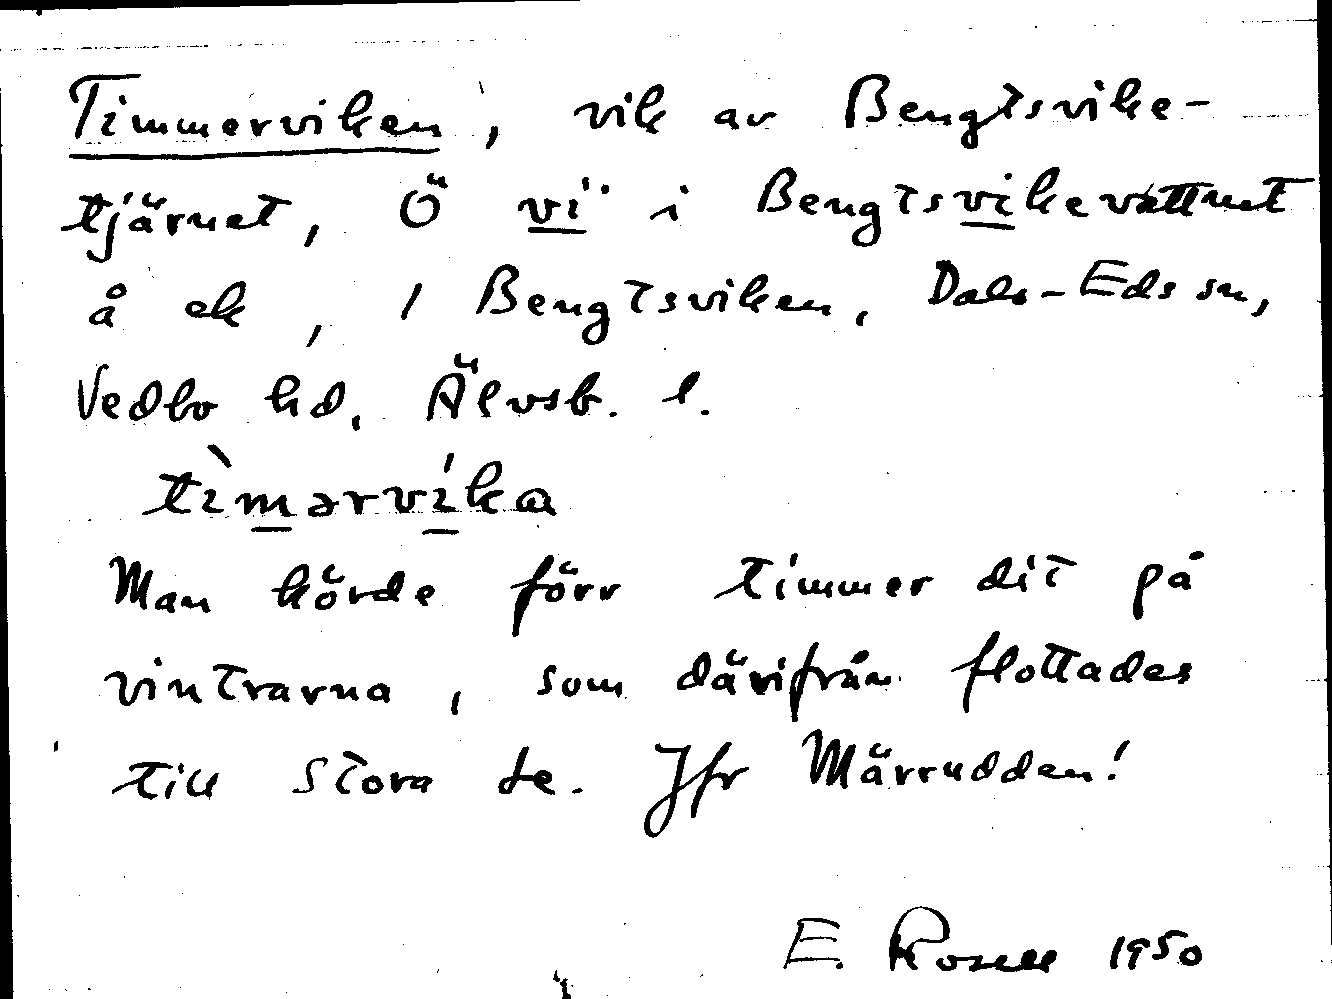 Timmerviken, vik av Bengtsvike-
tjärnet, Ö vi i Bengtsvikevattnet
å ek, / Bengtsviken, Dals-Eds sn,
Vedbo hd, Älvsb. l.
tìmərvíka
Man körde förr timmer dit på
vintrarna, som därifrån flottades
till Stora Le. Jfr Märrudden!
E. Rosell 1950